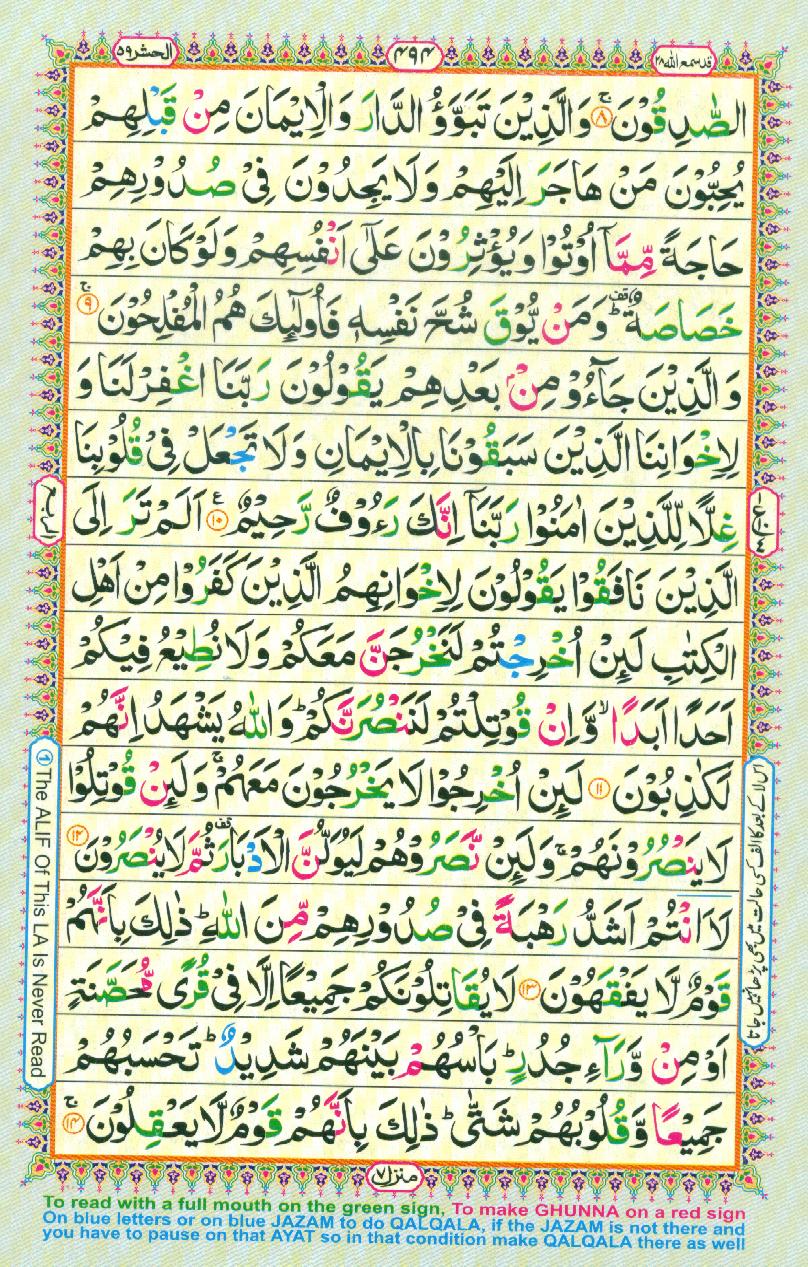 قد سمع الله ٢٨
٤٩٤
الحشر ٥٩
الصّٰدِقُوْنَ ۚ﴿۸﴾ وَالَّذِيْنَ تَبَوَّؤُ الدَّارَ وَالْاِيْمَانَ مِنْ قَبْلِهِمْ
يُحِبُّوْنَ مَنْ هَاجَرَ اِلَيْهِمْ وَلَا يَجِدُوْنَ فِيْ صُدُوْرِهِمْ
حَاجَةً مِّمَّآ اُوْتُوْا وَيُؤْثِرُوْنَ عَلٰٓى اَنْفُسِهِمْ وَلَوْ كَانَ بِهِمْ
خَصَاصَةٌ ؕ۫ وَمَنْ يُّوْقَ شُحَّ نَفْسِهٖ فَاُولٰٓئِكَ هُمُ الْمُفْلِحُوْنَ ۚ﴿۹﴾
وَالَّذِيْنَ جَآءُوْ مِنْۢ بَعْدِهِمْ يَقُوْلُوْنَ رَبَّنَا اغْفِرْ لَنَا وَ
لِاِخْوَانِنَا الَّذِيْنَ سَبَقُوْنَا بِالْاِيْمَانِ وَلَا تَجْعَلْ فِيْ قُلُوْبِنَا
غِلًّا لِّلَّذِيْنَ اٰمَنُوْا رَبَّنَآ اِنَّكَ رَءُوْفٌ رَّحِيْمٌ ﴿۱۰﴾ ع اَلَمْ تَرَ اِلَى
الَّذِيْنَ نَافَقُوْا يَقُوْلُوْنَ لِاِخْوَانِهِمُ الَّذِيْنَ كَفَرُوْا مِنْ اَهْلِ
الْكِتٰبِ لَئِنْ اُخْرِجْتُمْ لَنَخْرُجَنَّ مَعَكُمْ وَلَا نُطِيْعُ فِيْكُمْ
اَحَدًا اَبَدًا ۙ وَّاِنْ قُوْتِلْتُمْ لَنَنْصُرَنَّكُمْ ؕ وَاللّٰهُ يَشْهَدُ اِنَّهُمْ
لَكٰذِبُوْنَ ﴿۱۱﴾ لَئِنْ اُخْرِجُوْا لَا يَخْرُجُوْنَ مَعَهُمْ ۚ وَلَئِنْ قُوْتِلُوْا
لَا يَنْصُرُوْنَهُمْ ۚ وَلَئِنْ نَّصَرُوْهُمْ لَيُوَلُّنَّ الْاَدْبَارَ ۟ ثُمَّ لَا يُنْصَرُوْنَ ﴿۱۲﴾
لَا۠ اَنْتُمْ اَشَدُّ رَهْبَةً فِيْ صُدُوْرِهِمْ مِّنَ اللّٰهِ ؕ ذٰلِكَ بِاَنَّهُمْ
قَوْمٌ لَّا يَفْقَهُوْنَ ﴿۱۳﴾ لَا يُقَاتِلُوْنَكُمْ جَمِيْعًا اِلَّا فِيْ قُرًى مُّحَصَّنَةٍ
اَوْ مِنْ وَّرَآءِ جُدُرٍ ؕ بَاْسُهُمْ بَيْنَهُمْ شَدِيْدٌ ؕ تَحْسَبُهُمْ
جَمِيْعًا وَّقُلُوْبُهُمْ شَتّٰى ؕ ذٰلِكَ بِاَنَّهُمْ قَوْمٌ لَّا يَعْقِلُوْنَ ۚ﴿۱۴﴾
الربع
① The ALIF Of This LA Is Never Read
اس لا کے بعد کا الف کسی حالت میں بھی پڑھا نہیں جاتا
منزل ٧
To read with a full mouth on the green sign, To make GHUNNA on a red sign
On blue letters or on blue JAZAM to do QALQALA, if the JAZAM is not there and
you have to pause on that AYAT so in that condition make QALQALA there as well